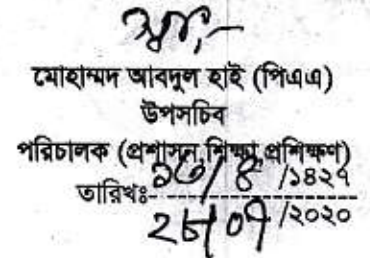 স্বা,-
মোহাম্মদ আবদুল হাই (পিএএ)
উপসচিব
পরিচালক (প্রশাসন,শিক্ষা,প্রশিক্ষণ)
তারিখঃ- ১৩/৪/১৪২৭
২৮/০৭/২০২০